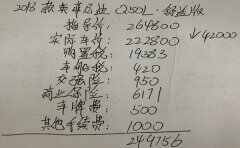 2018款英菲尼迪 Q50L·舒适版
指导价: 264800
实际车价: 222800 ↓42000
购置税: 19383
车船税: 420
交强险: 950
商业保险: 6171
上牌费: 500
其他手续费: 1000
244756